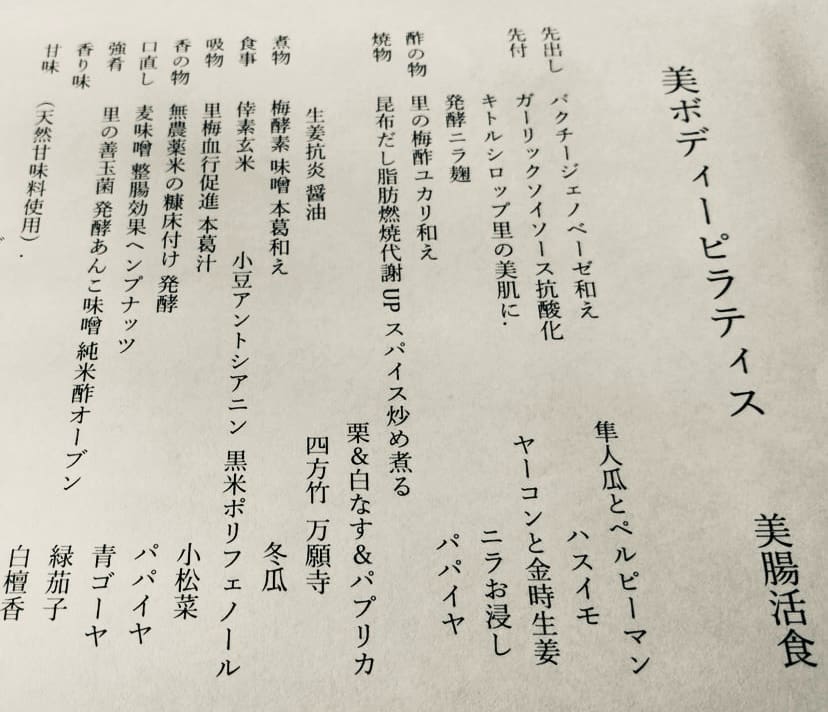 美ボディーピラティス 美腸活食
先出し バクチージェノベーゼ和え 隼人瓜とペルピーマン
先付 ガーリックソイソース抗酸化 ハスイモ
キトルシロップ里の美肌に. ヤーコンと金時生姜
発酵ニラ麹 ニラお浸し
酢の物 里の梅酢ユカリ和え パパイヤ
焼物 昆布だし脂肪燃焼代謝UP スパイス炒め煮る
栗&白なす&パプリカ
生姜抗炎 醤油 四方竹 万願寺
煮物 梅酵素 味噌 本葛和え 冬瓜
食事 倖素玄米 小豆アントシアニン 黒米ポリフェノール
吸物 里梅血行促進 本葛汁 小松菜
香の物 無農薬米の糠床付け 発酵 パパイヤ
口直し 麦味噌 整腸効果ヘンプナッツ 青ゴーヤ
強肴 里の善玉菌 発酵あんこ味噌 純米酢オーブン 緑茄子
香り味 白檀香
甘味 (天然甘味料使用).